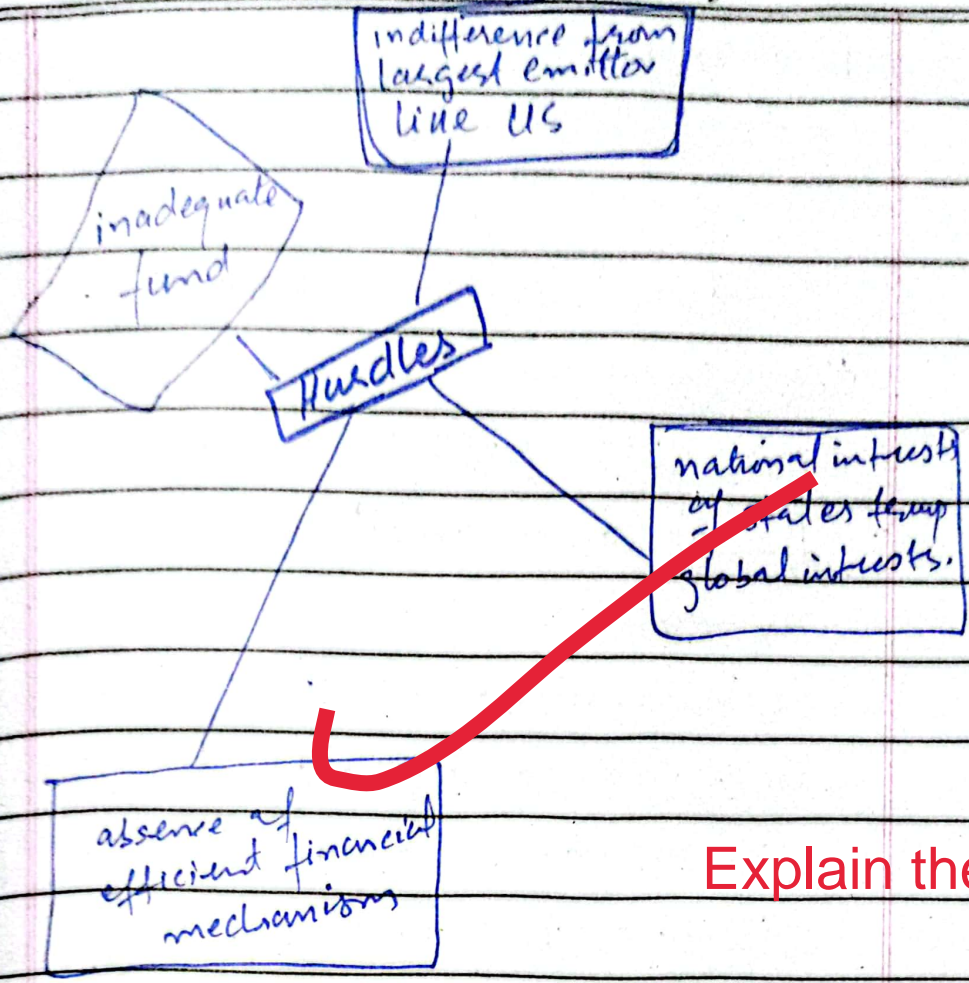 indifference from
largest emitter
like US
inadequate
fund
Hurdles
national interests
of states trump
global interests.
absence of
efficient financial
mechanisms
Explain the